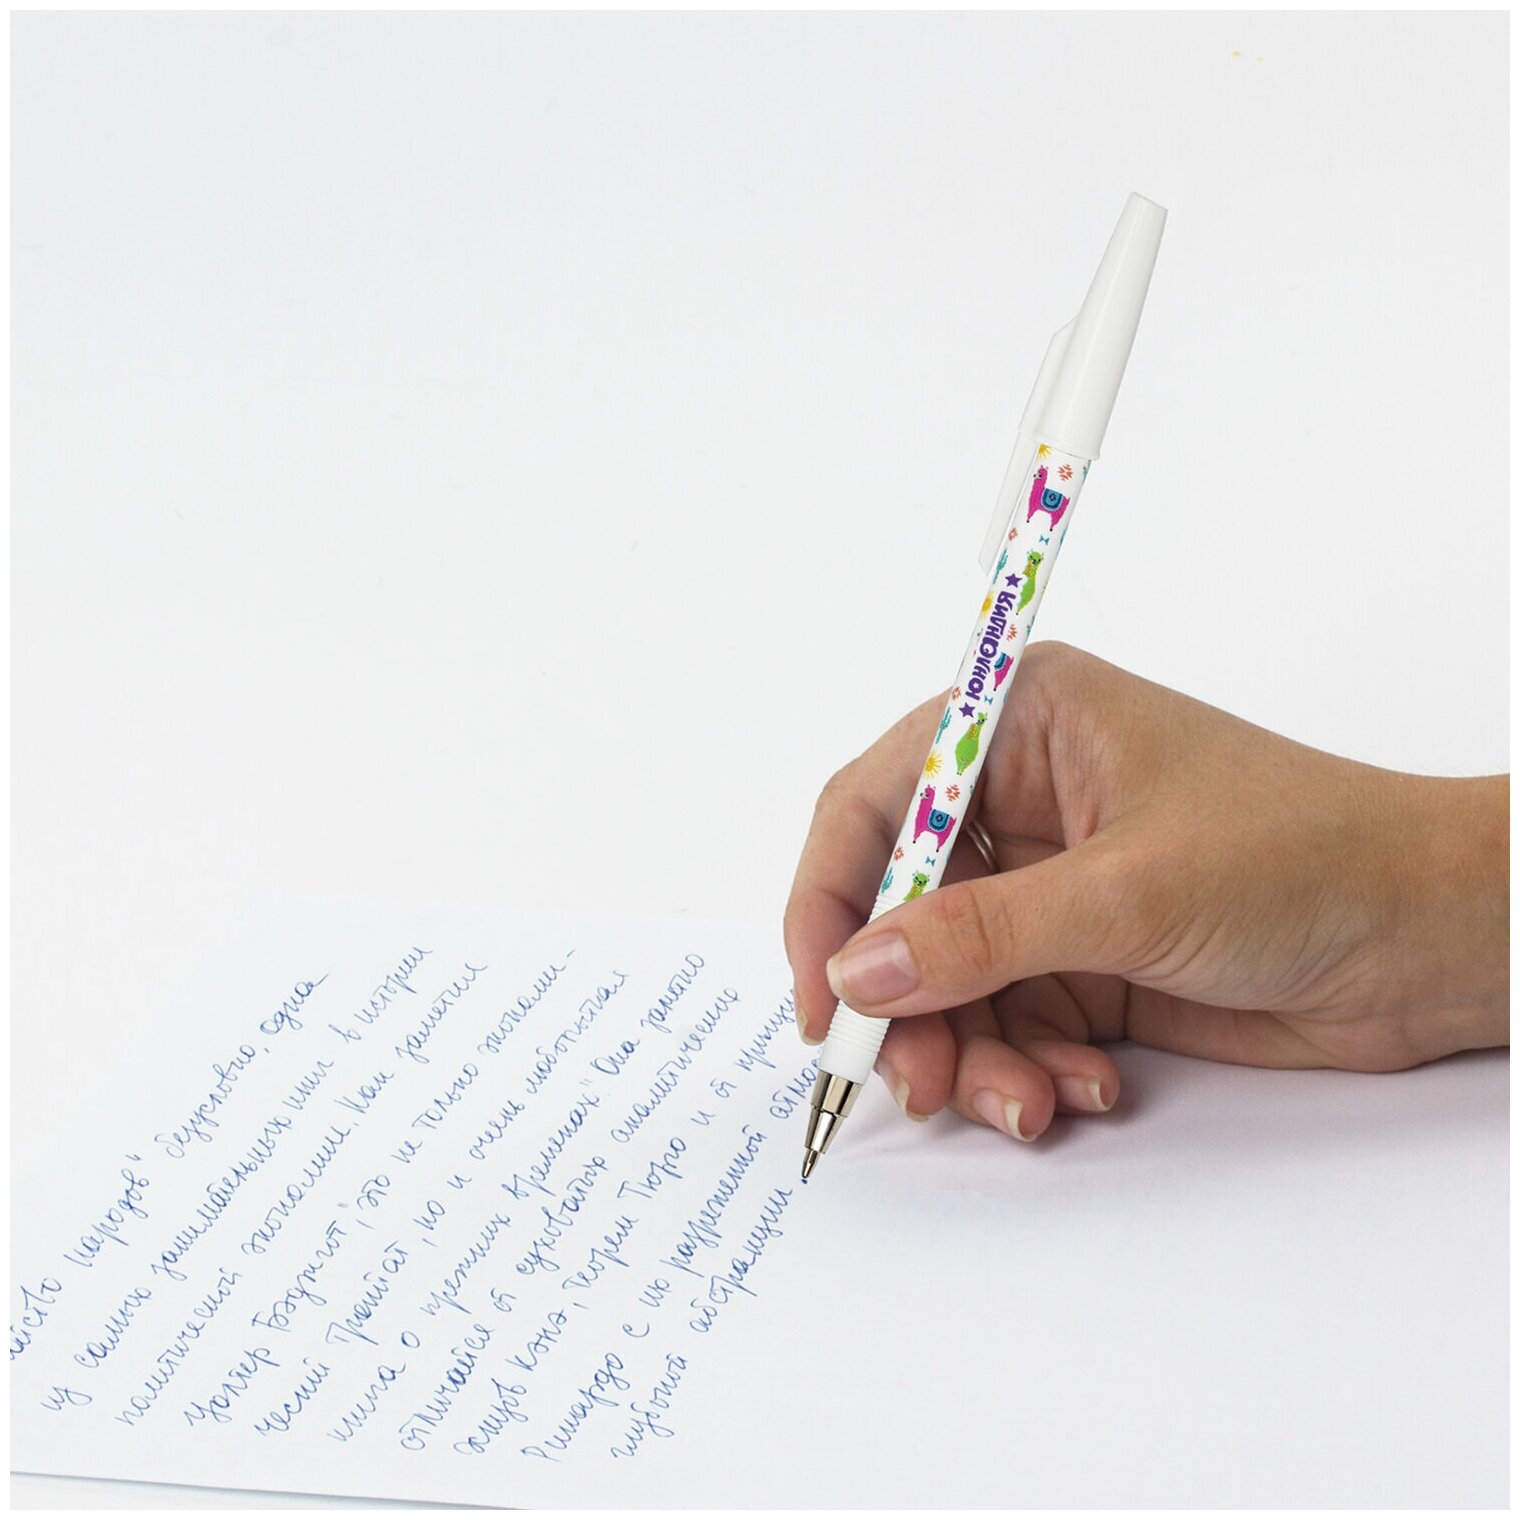 ★ ЮНЛАНДИЯ ★
народов" безусловно, одна
из самых занимательных книг в истории
политической экономии. Как заметил
Уолтер Бэджгот, "это не только экономи-
ческий трактат, но и очень любопытная
книга о прежних временах". Она заметно
отличается от суховатых аналитических
эскизов Кэнэ, теорем Тюрго и от
Рикардо с их разреженной
глубокой абстракции